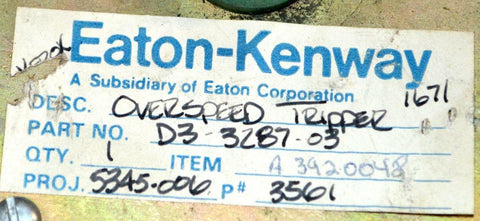 Eaton-Kenway
A Subsidiary of Eaton Corporation 1671
DESC. OVERSPEED TRIPPER
PART NO. D3-3287-03
QTY. 1 ITEM A 392.0048
PROJ. 5345-006 P# 3561